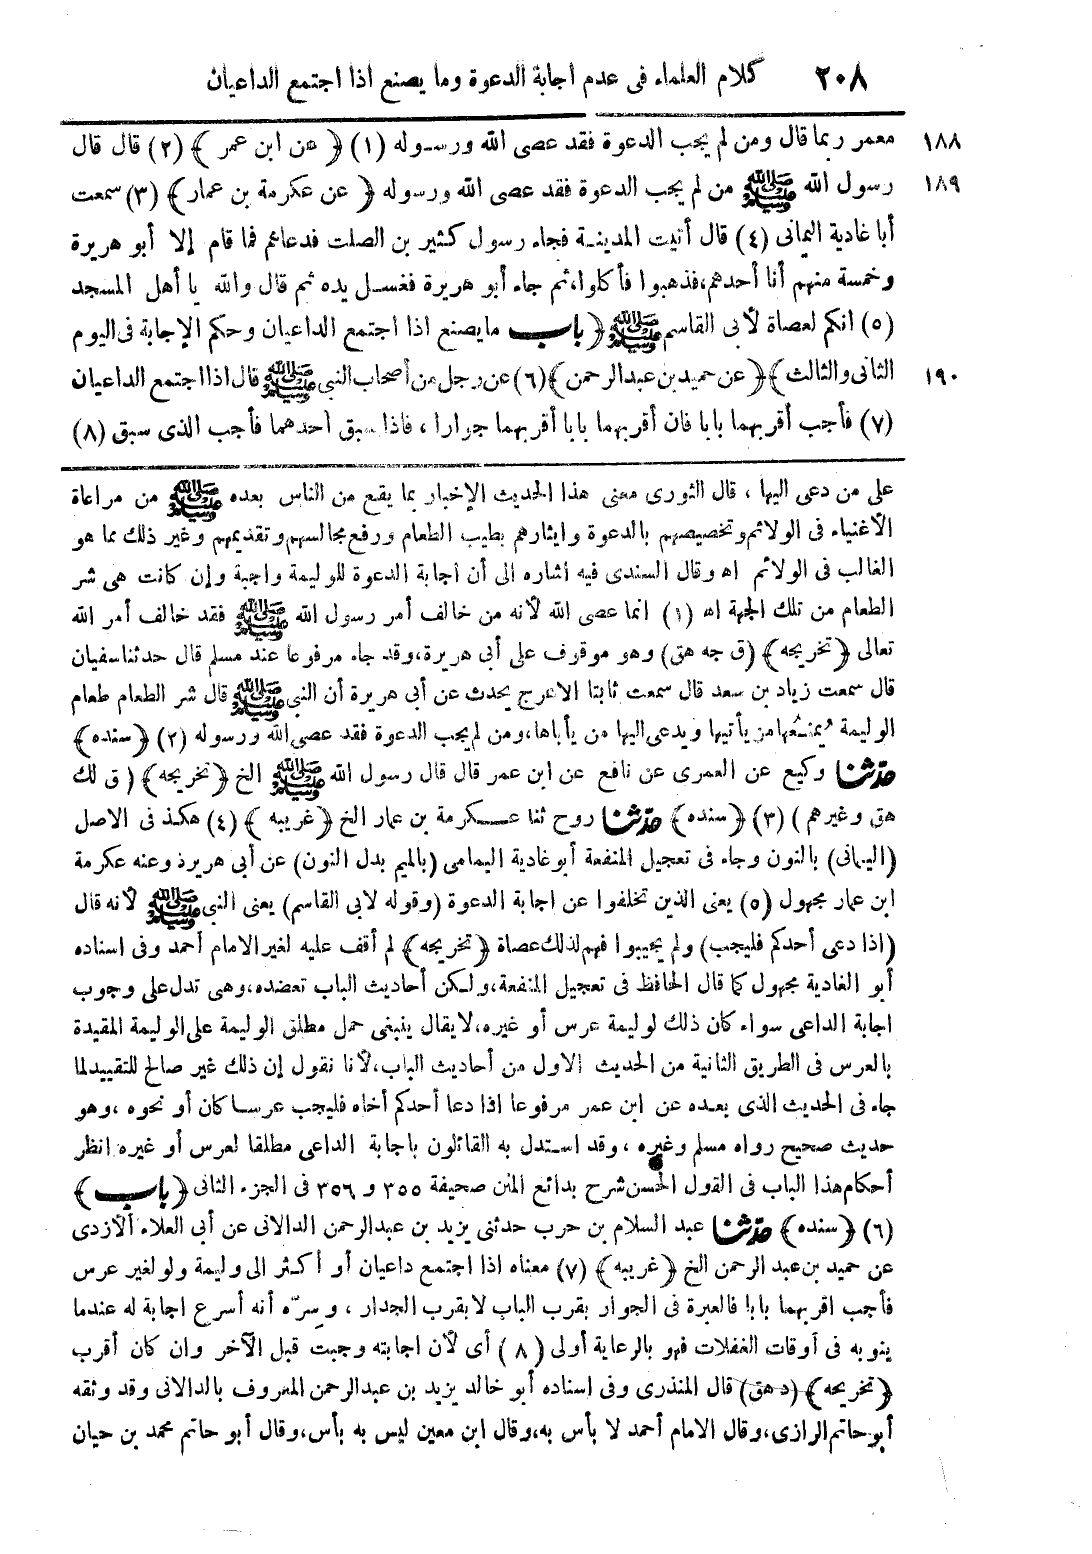 ٢٠٨ كلام العلماء فى عدم اجابة الدعوة وما يصنع اذا اجتمع الداعيان
١٨٨ معمر ربما قال ومن لم يجب الدعوة فقد عصى الله ورسوله (١) ﴿ عن ابن عمر ﴾ (٢) قال قال
١٨٩ رسول الله ﷺ من لم يجب الدعوة فقد عصى الله ورسوله ﴿ عن عكرمة بن عمار ﴾ (٣) سمعت
أبا غادية اليمانى (٤) قال أتيت المدينة فجاء رسول كثير بن الصلت فدعاهم فما قام إلا أبو هريرة
وخمسة منهم أنا أحدهم،فذهبوا فأكلوا،ثم جاء أبو هريرة فغسل يده ثم قال والله يا أهل المسجد
(٥) انكم لعصاة لأبى القاسم ﷺ ﴿ باب ما يصنع اذا اجتمع الداعيان وحكم الإجابة فى اليوم
١٩٠ الثانى والثالث ﴾ ﴿ عن حميد بن عبد الرحمن ﴾ (٦) عن رجل من أصحاب النبى ﷺ قال اذا اجتمع الداعيان
(٧) فأجب أقربهما بابا فان أقربهما بابا أقربهما جوارا ، فاذا سبق أحدهما فأجب الذى سبق (٨)
على من دعى اليها ، قال النورى معنى هذا الحديث الإخبار بما يقع من الناس بعده ﷺ من مراعاة
الأغنياء فى الولائم وتخصيصهم بالدعوة وايثارهم بطيب الطعام ورفع مجالسهم وتقديمهم وغير ذلك مما هو
الغالب فى الولائم اه وقال السندى فيه اشاره الى أن اجابة الدعوة للوليمة واجبة وإن كانت هى شر
الطعام من تلك الجهة اه (١) انما عصى الله لأنه من خالف أمر رسول الله ﷺ فقد خالف أمر الله
تعالى ﴿ تخريجه ﴾ (ق جه هق) وهو موقوف على أبى هريرة،وقد جاء مرفوعا عند مسلم قال حدثنا سفيان
قال سمعت زياد بن سعد قال سمعت ثابتا الاعرج يحدث عن أبى هريرة أن النبى ﷺ قال شر الطعام طعام
الوليمة يُمنَعُها من يأتيها ويدعى اليها من يأباها،ومن لم يجب الدعوة فقد عصى الله ورسوله (٢) ﴿ سنده ﴾
حدّثنا وكيع عن العمرى عن نافع عن ابن عمر قال قال رسول الله ﷺ الخ ﴿ تخريجه ﴾ ( ق لك
هق وغيرهم ) (٣) ﴿ سنده ﴾ حدّثنا روح ثنا عكرمة بن عمار الخ ﴿ غريبه ﴾ (٤) هكذ فى الاصل
(اليمانى) بالنون وجاء فى تعجيل المنفعة أبو غادية اليمامى (بالميم بدل النون) عن أبى هريرذ وعنه عكرمة
ابن عمار مجهول (٥) يعنى الذين تخلفوا عن اجابة الدعوة (وقوله لابى القاسم) يعنى النبى ﷺ لأنه قال
(اذا دعى أحدكم فليجب) ولم يجيبوا فهم لذلك عصاة ﴿ تخريجه ﴾ لم أقف عليه لغير الامام أحمد وفى اسناده
أبو الغادية مجهول كما قال الحافظ فى تعجيل المنفعة،ولكن أحاديث الباب تعضده،وهى تدل على وجوب
اجابة الداعى سواء كان ذلك لوليمة عرس أو غيره،لا يقال ينبغى حمل مطلق الوليمة على الوليمة المقيدة
بالعرس فى الطريق الثانية من الحديث الاول من أحاديث الباب،لأنا نقول إن ذلك غير صالح للتقييد لما
جاء فى الحديث الذى بعده عن ابن عمر مرفوعا اذا دعا أحدكم أخاه فليجب عرسا كان أو نحوه ،وهو
حديث صحيح رواه مسلم وغيره ، وقد استدل به القائلون باجابة الداعى مطلقا لعرس أو غيره انظر
أحكام هذا الباب فى القول الحسن شرح بدائع المنن صحيفة ٣٥٥ و ٣٥٦ فى الجزء الثانى ﴿ باب ﴾
(٦) ﴿ سنده ﴾ حدّثنا عبد السلام بن حرب حدثنى يزيد بن عبد الرحمن الدالانى عن أبى العلاء الأزدى
عن حميد بن عبد الرحمن الخ ﴿ غريبه ﴾ (٧) معناه اذا اجتمع داعيان أو أكثر الى وليمة ولو لغير عرس
فأجب اقربهما بابا فالعبرة فى الجوار بقرب الباب لا بقرب الجدار ، وسرّه أنه أسرع اجابة له عندما
ينوبه فى أوقات الغفلات فهو بالرعاية أولى ( ٨ ) أى لأن اجابته وجبت قبل الآخر وان كان أقرب
﴿ تخريجه ﴾ (د هق) قال المنذرى وفى اسناده أبو خالد يزيد بن عبد الرحمن المعروف بالدالانى وقد وثقه
أبو حاتم الرازى،وقال الامام أحمد لا بأس به،وقال ابن معين ليس به بأس،وقال أبو حاتم محمد بن حيان